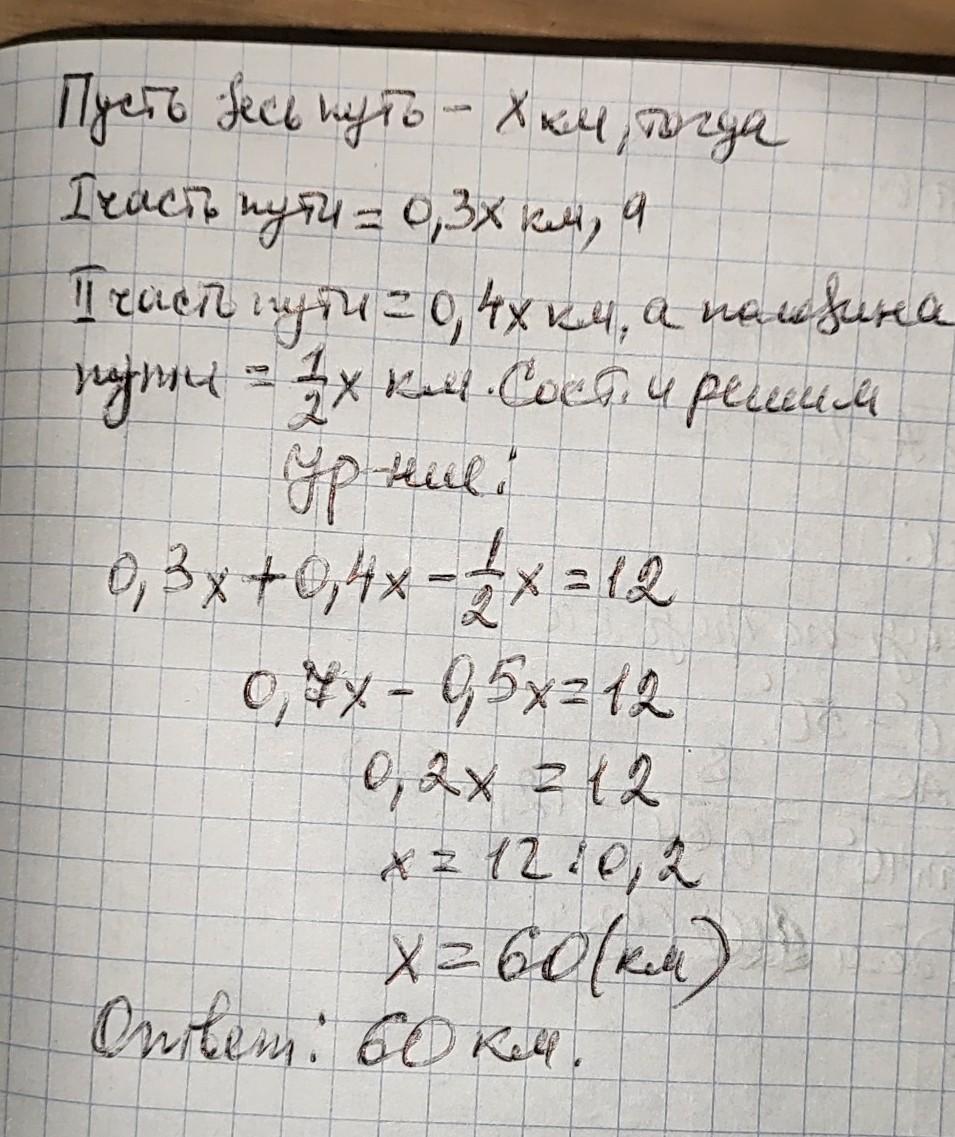 Пусть весь путь - х км, тогда
I часть пути = 0,3х км, а
II часть пути = 0,4х км, а половина
пути = 1/2 х км. Сост. и решим
ур-ние:
0,3х + 0,4х - 1/2 х = 12
0,7х - 0,5х = 12
0,2х = 12
х = 12 : 0,2
х = 60 (км)
Ответ: 60 км.